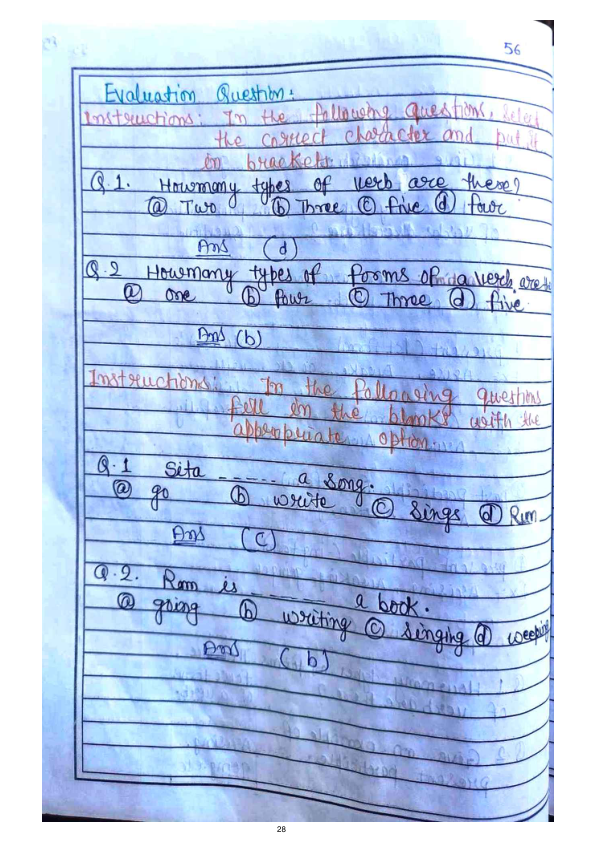 56
Evaluation Question:
Instructions: In the following Questions, select
the correct character and put it
in brackets.
Q.1. Howmany types of verb are these?
ⓐ Two ⓑ Three ⓒ five ⓓ four
Ans (d)
Q.2 Howmany types of forms of a verb are
ⓐ one ⓑ four ⓒ Three ⓓ five
Ans (b)
Instructions: In the following question
fill in the blanks with the
appropriate option.
Q.1 Sita _ _ _ _ _ a song.
ⓐ go ⓑ write ⓒ Sings ⓓ Run
Ans (c)
Q.2. Ram is _ _ _ _ _ _ a book.
ⓐ going ⓑ writing ⓒ Singing ⓓ weeping
Ans (b)
28